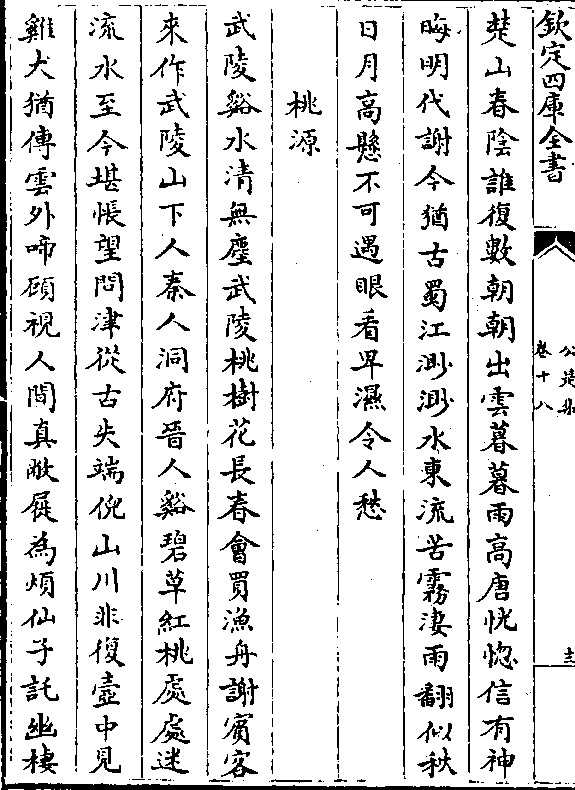 欽定四庫全書
公是集
卷十八
十三
楚山春陰誰復數朝朝出雲暮暮雨高唐恍惚信有神
晦明代謝今猶古蜀江渺渺水東流苦霧淒雨翻似秋
日月高懸不可遇眼看卑濕令人愁
桃源
武陵谿水清無塵武陵桃樹花長春會買漁舟謝賓客
來作武陵山下人秦人洞府晉人谿碧草紅桃處處迷
流水至今堪悵望問津從古失端倪山川非復壺中見
雞犬猶傳雲外啼顧視人間真敝屣為煩仙子託幽棲